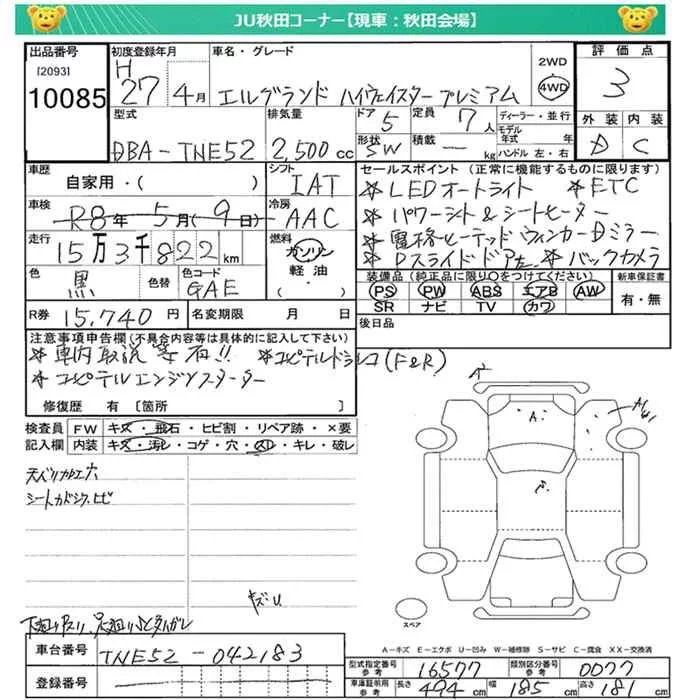 JU秋田コーナー【現車：秋田会場】
出品番号 初度登録年月 車名・グレード 評価点
[2093] H 2WD
10085 27 4月 エルグランド ハイウェイスター プレミアム 4WD 3
型式 排気量 ドア 定員 ディーラー・並行 外装 内装
5 7人 モデル年式 年
DBA-TNE52 2,500cc 形状 積載 ハンドル 左・右 D C
SW - kg
車歴 シフト セールスポイント（正常に機能するものに限ります）
自家用・( ) IAT *LEDオートライト *ETC
車検 冷房 *パワーシート&シートヒーター
R8年5月(9日) AAC *電格ヒーテッドウィンカーDミラー
走行 燃料 *Pスライドドア左 *バックカメラ
15万3千822km ガソリン
軽油・ 装備品（純正品に限り○をつけてください） 新車保証書
色 色替 色コード PS PW ABS エアB AW 有・無
黒 GAE ( ) SR ナビ TV カワ
R券 15,740円 名変期限 月 日 後日品
注意事項申告欄（不具合内容等は具体的に記入して下さい）
*車内取説等有!! *コムピテルドラレコ(F&R)
*コムピテルエンジンスターター
修復歴 有 〔箇所 〕
検査員 FW キズ・飛石・ヒビ割・リペア跡・×要
記入欄 内装 キズ・汚レ・コゲ・穴・スレ・キレ・破レ
シート
キズU
A
A
スペア
A-キズ E-エクボ U-凹み W-補修跡 S-サビ C-腐食 XX-交換済
車台番号 TNE52-042183
登録番号
型式指定番号 参考 16577 類別区分番号 参考 0077
車庫証明用 参考 長さ 494cm 幅 185cm 高さ 181cm